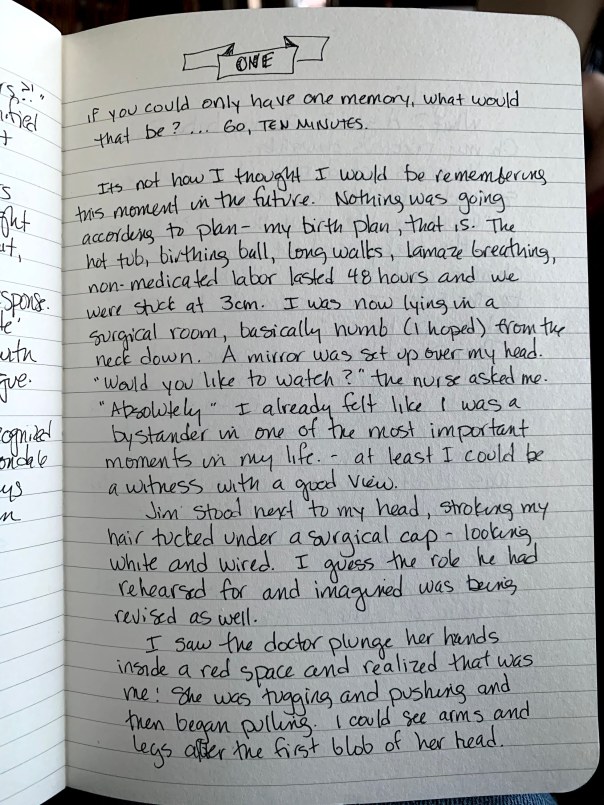 s?!"
t
ONE
if you could only have one memory, what would
that be? ... Go, TEN MINUTES.
Its not how I thought I would be remembering
this moment in the future. Nothing was going
according to plan - my birth plan, that is. The
hot tub, birthing ball, long walks, lamaze breathing,
non-medicated labor lasted 48 hours and we
were stuck at 3cm. I was now lying in a
surgical room, basically numb (I hoped) from the
neck down. A mirror was set up over my head.
"Would you like to watch?" the nurse asked me.
"Absolutely" I already felt like I was a
bystander in one of the most important
moments in my life. - at least I could be
a witness with a good view.
Jim stood next to my head, stroking my
hair tucked under a surgical cap - looking
white and wired. I guess the role he had
rehearsed for and imagined was being
revised as well.
I saw the doctor plunge her hands
inside a red space and realized that was
me! She was tugging and pushing and
then began pulling. I could see arms and
legs after the first blob of her head.